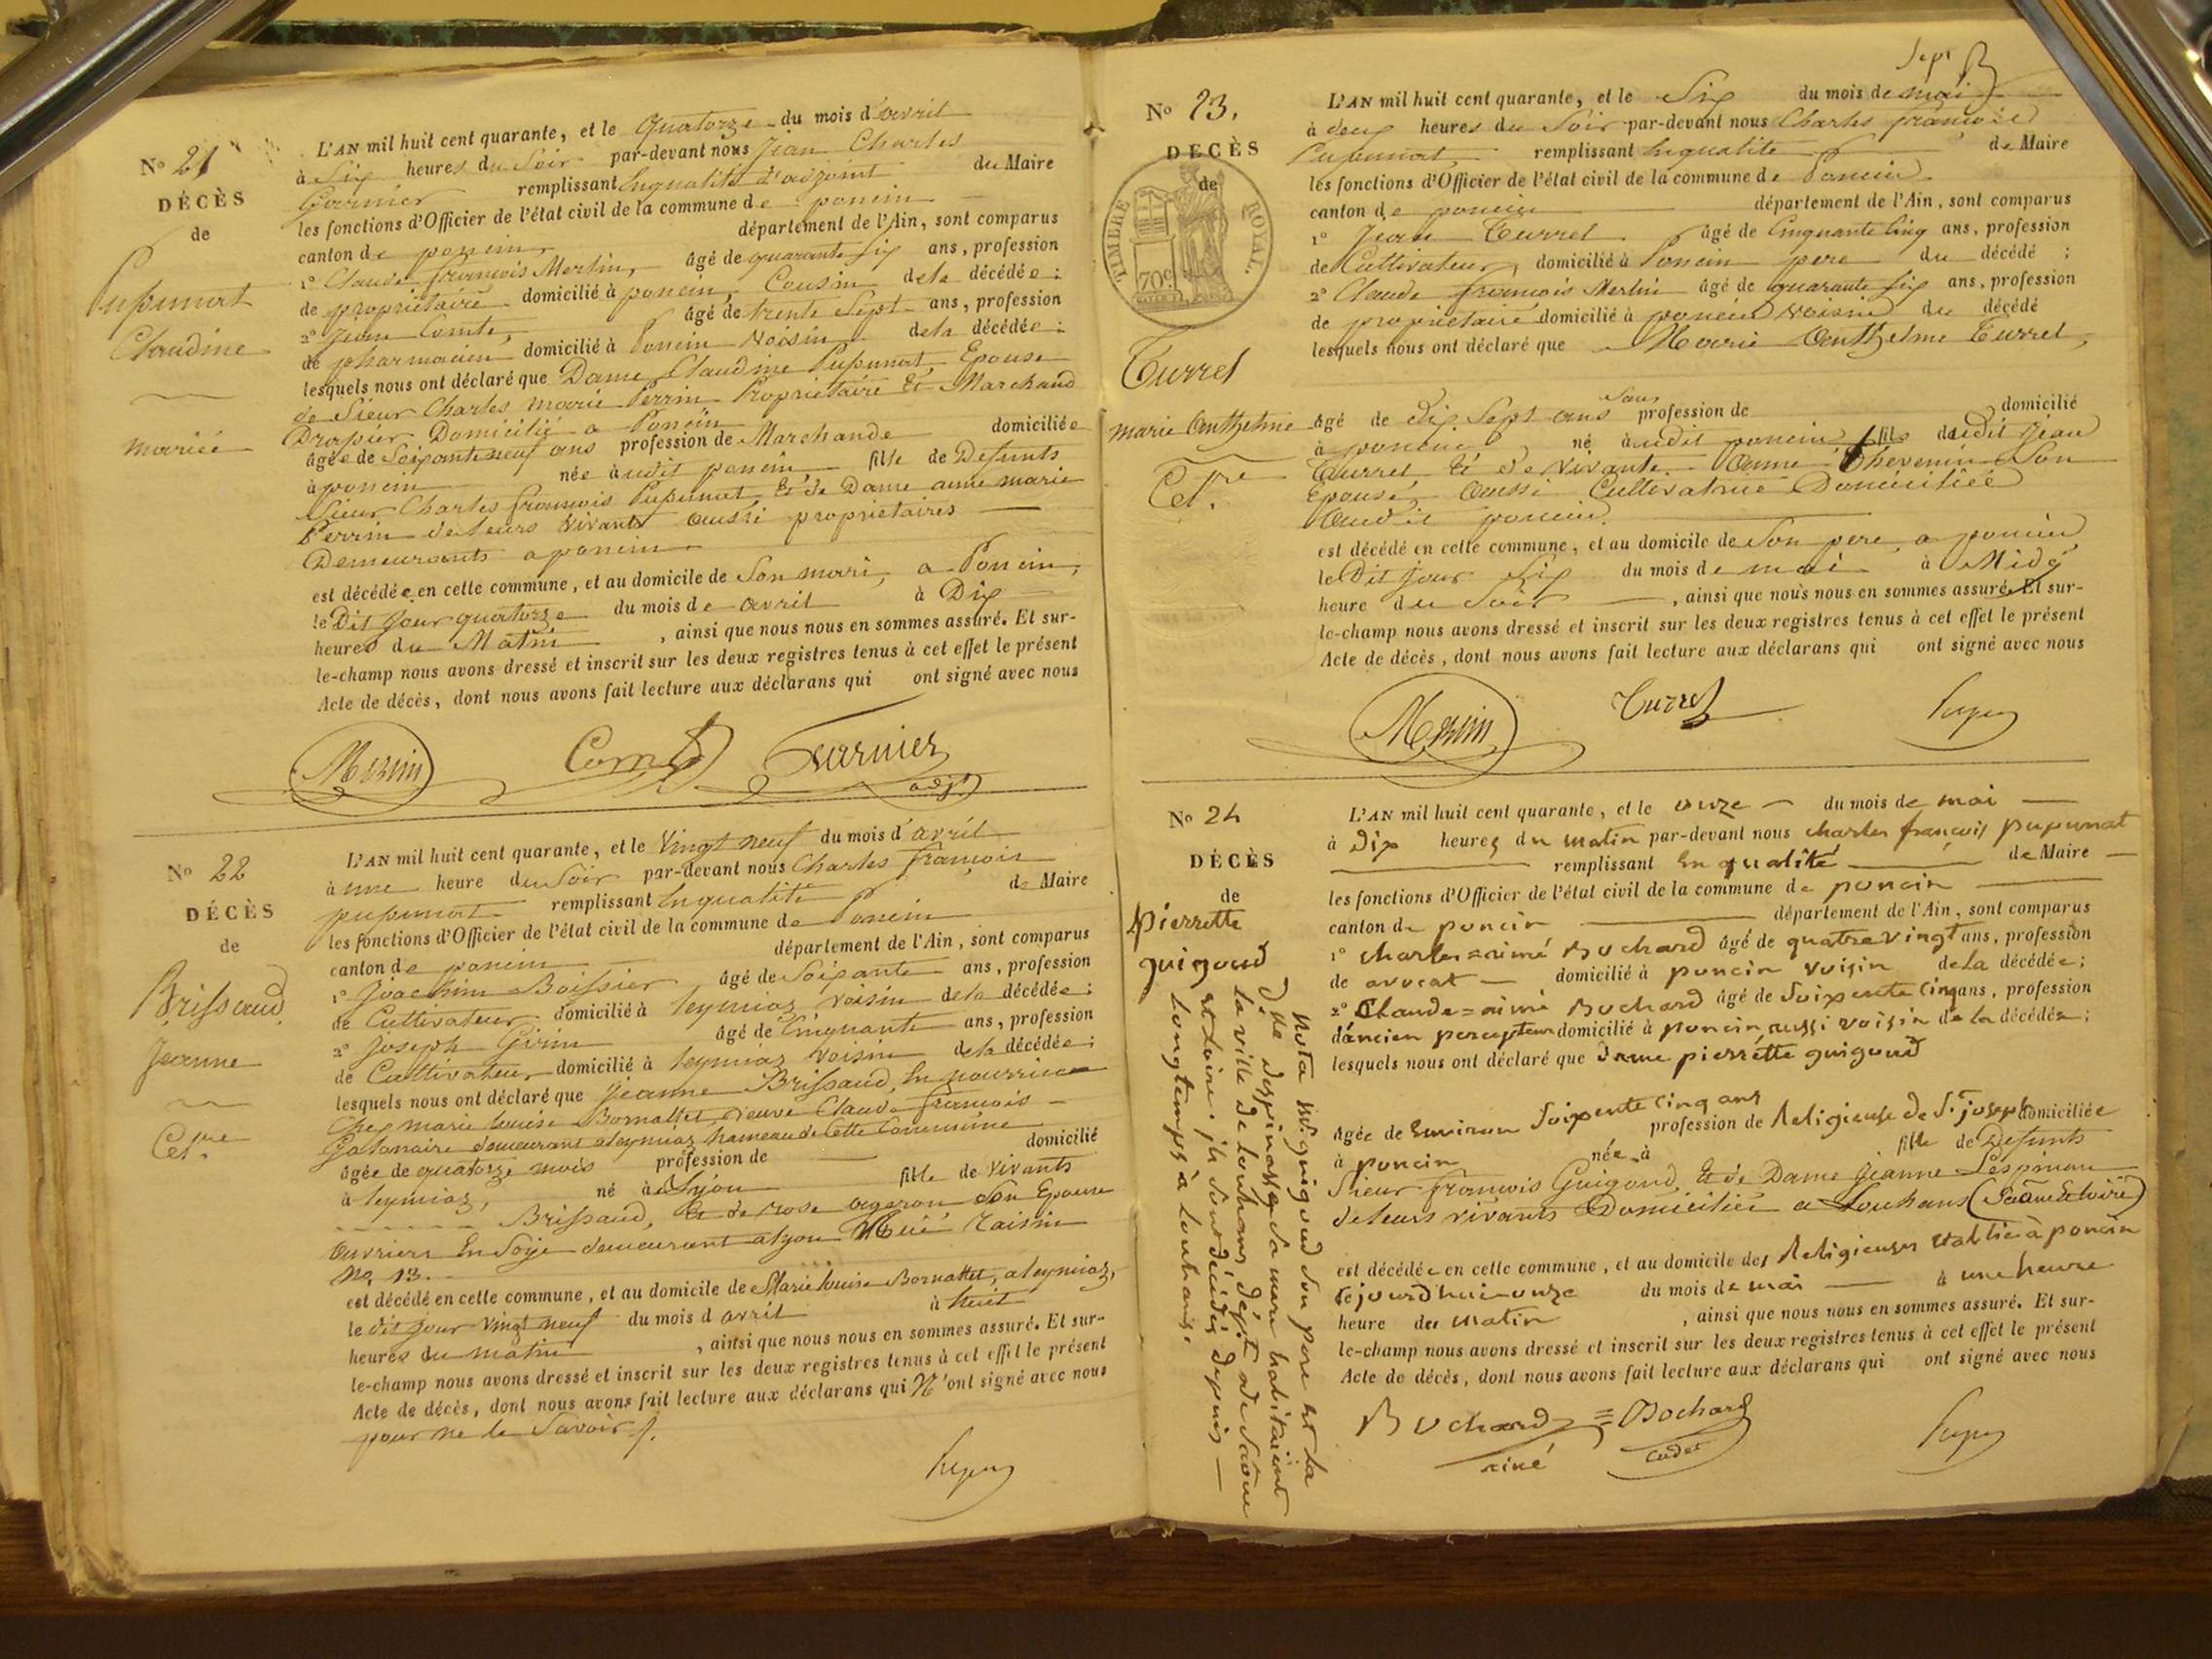 N° 21
DÉCÈS
de
Pupunat
Claudine
mariée
L'AN mil huit cent quarante, et le quatorze du mois d'avril
à Six heures du Soir par-devant nous Jean Charles
Garnier remplissant Enqualité d'adjoint du Maire
les fonctions d'Officier de l'état civil de la commune de poncin
canton de poncin département de l'Ain, sont comparus
1° Claude françois Merlin, âgé de quarante Six ans, profession
de propriétaire domicilié à poncin, Cousin de la décédée;
2° Jean Comte, âgé de trente Sept ans, profession
de pharmacien domicilié à Poncin Voisin de la décédée;
lesquels nous ont déclaré que Dame Claudine Pupunat, Epouse
de Sieur Charles marie Perrin Propriétaire Et Marchand
Drapier Domicilié a Poncin
âgée de Soixante neuf ans profession de Marchande domiciliée
à poncin née audit poncin fille de Defunts
Sieur Charles françois Pupunat Et de Dame anne marie
Perrin de leurs vivants aussi propriétaires
Demeurants a poncin
est décédée en cette commune, et au domicile de Son mari, a Poncin,
le Dit Jour quatorze du mois de avril à Dix
heures du Matin, ainsi que nous nous en sommes assuré. Et sur-
le-champ nous avons dressé et inscrit sur les deux registres tenus à cet effet le présent
Acte de décès, dont nous avons fait lecture aux déclarans qui ont signé avec nous
Merlin Comte Garnier
adjt
N° 22
DÉCÈS
de
Brissaud
Jeanne
Cel.re
L'AN mil huit cent quarante, et le Vingt neuf du mois d'avril
à une heure du Soir par-devant nous Charles françois
pupunat remplissant Enqualité de Maire
les fonctions d'Officier de l'état civil de la commune de Poncin
canton de poncin département de l'Ain, sont comparus
1° Joachim Boissier âgé de Soixante ans, profession
de Cultivateur domicilié à leymiaz voisin de la décédée;
2° Joseph Girin âgé de Cinquante ans, profession
de Cultivateur domicilié à leymiaz Voisin de la décédée;
lesquels nous ont déclaré que Jeanne Brissaud, En nourrice
Chez marie louise Bornattet, veuve Claude françois
demeurant a leymiaz hameau de Cette Commune
âgée de quatorze mois profession de domicilié
à leymiaz, né à Lyon fille de vivants
Brissaud, Et de rose ageron Son Epouse
ouvriers En Soye demeurant a lyon Raisin
No 13.
est décédé en cette commune, et au domicile de Marie louise Bornattet, a leymiaz,
le dit jour vingt neuf du mois d avril à huit
heures du matin, ainsi que nous nous en sommes assuré. Et sur-
le-champ nous avons dressé et inscrit sur les deux registres tenus à cet effet le présent
Acte de décès, dont nous avons fait lecture aux déclarans qui N'ont signé avec nous
pour ne le Savoir
N° 23.
DÉCÈS
de
TIMBRE ROYAL
70c
Turrel
marie anthelme
Cel.re
L'AN mil huit cent quarante, et le Six du mois de mai
à deux heures du Soir par-devant nous Charles françois
Pupunat remplissant Enqualité de Maire
les fonctions d'Officier de l'état civil de la commune de Poncin
canton de poncin département de l'Ain, sont comparus
1° Jean Turrel âgé de Cinquante Cinq ans, profession
de Cultivateur, domicilié à Poncin pere du décédé;
2° Claude françois Merlin âgé de quarante Six ans, profession
de proprietaire domicilié à poncin voisin du décédé
lesquels nous ont déclaré que Marie Anthelme Turrel,
Sans
âgé de dix Sept ans profession de domicilié
à poncin né audit poncin fils dudit Jean
Turrel Et de vivante Anne Thevenin Son
Epouse, Aussi Cultivatrice Domiciliée
audit poncin.
est décédé en cette commune, et au domicile de Son pere a poncin
le Dit Jour Six du mois de mai à Midy
heure du Soir, ainsi que nous nous en sommes assuré. Et sur-
le-champ nous avons dressé et inscrit sur les deux registres tenus à cet effet le présent
Acte de décès, dont nous avons fait lecture aux déclarans qui ont signé avec nous
Merlin Turrel
N° 24
DÉCÈS
de
Pierrette
guigoud
L'AN mil huit cent quarante, et le onze du mois de mai
à Dix heures du matin par-devant nous charles françois pupunat
remplissant En qualité de Maire
les fonctions d'Officier de l'état civil de la commune de poncin
canton de poncin département de l'Ain, sont comparus
1° charles=aimé Bochard âgé de quatre vingt ans, profession
de avocat domicilié à poncin voisin de la décédée;
2° Claude=aimé Bochard âgé de Soixente Cinq ans, profession
d'ancien percepteur domicilié à poncin aussi voisin de la décédée;
lesquels nous ont déclaré que Dame pierrette guigoud
âgée de Environ Soixente Cinq ans profession de Religieuse de St. joseph domiciliée
à poncin née à fille de Defunts
Sieur françois Guigoud, Et de Dame Jeanne Lespinasse
de leurs vivants Domiciliés a Louhans (Saône Et loire)
est décédée en cette commune, et au domicile des Religieuses Etablie à poncin
cejourd'hui onze du mois de mai à une heure
heure du matin, ainsi que nous nous en sommes assuré. Et sur-
le-champ nous avons dressé et inscrit sur les deux registres tenus à cet effet le présent
Acte de décès, dont nous avons fait lecture aux déclarans qui ont signé avec nous
Bochard = Bochard
ainé cadet
nota Mr guigoud Son pere et la
Dme despinasse Sa mere habitaient
la ville de Louhans dépt de Saône
et Loire. ils Sont décédés depuis
Longtemps à Louhans.